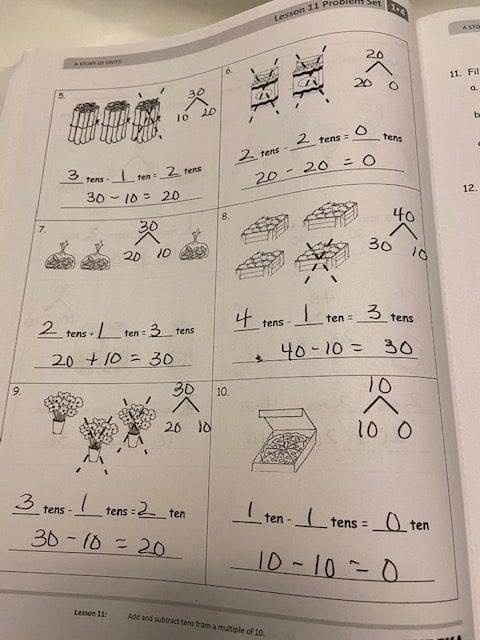 Lesson 11 Problem Set 1•4
A STORY OF UNITS
5.
30
10 20
3 tens - 1 ten = 2 tens
30 - 10 = 20
6.
20
20 0
2 tens - 2 tens = 0 tens
20 - 20 = 0
7.
30
20 10
2 tens + 1 ten = 3 tens
20 + 10 = 30
8.
40
30 10
4 tens - 1 ten = 3 tens
40 - 10 = 30
9.
30
20 10
3 tens - 1 tens = 2 ten
30 - 10 = 20
10.
10
10 0
1 ten - 1 tens = 0 ten
10 - 10 = 0
Lesson 11: Add and subtract tens from a multiple of 10.
A STO
11. Fil
a.
b
12.